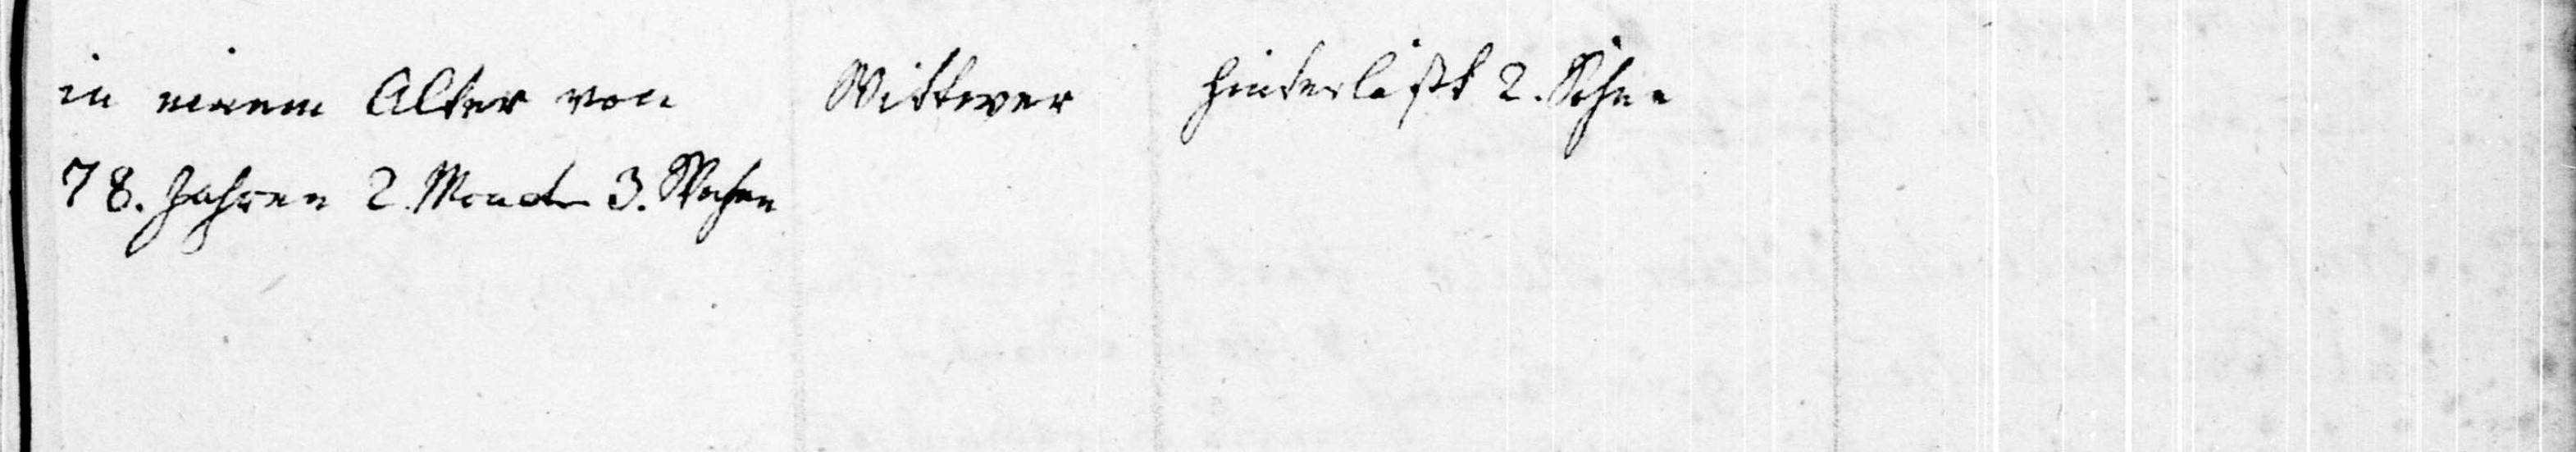 in einem Alter von Wittwer hinterläßt 2. Söhne
78. Jahren 2. Monate 3. Wochen